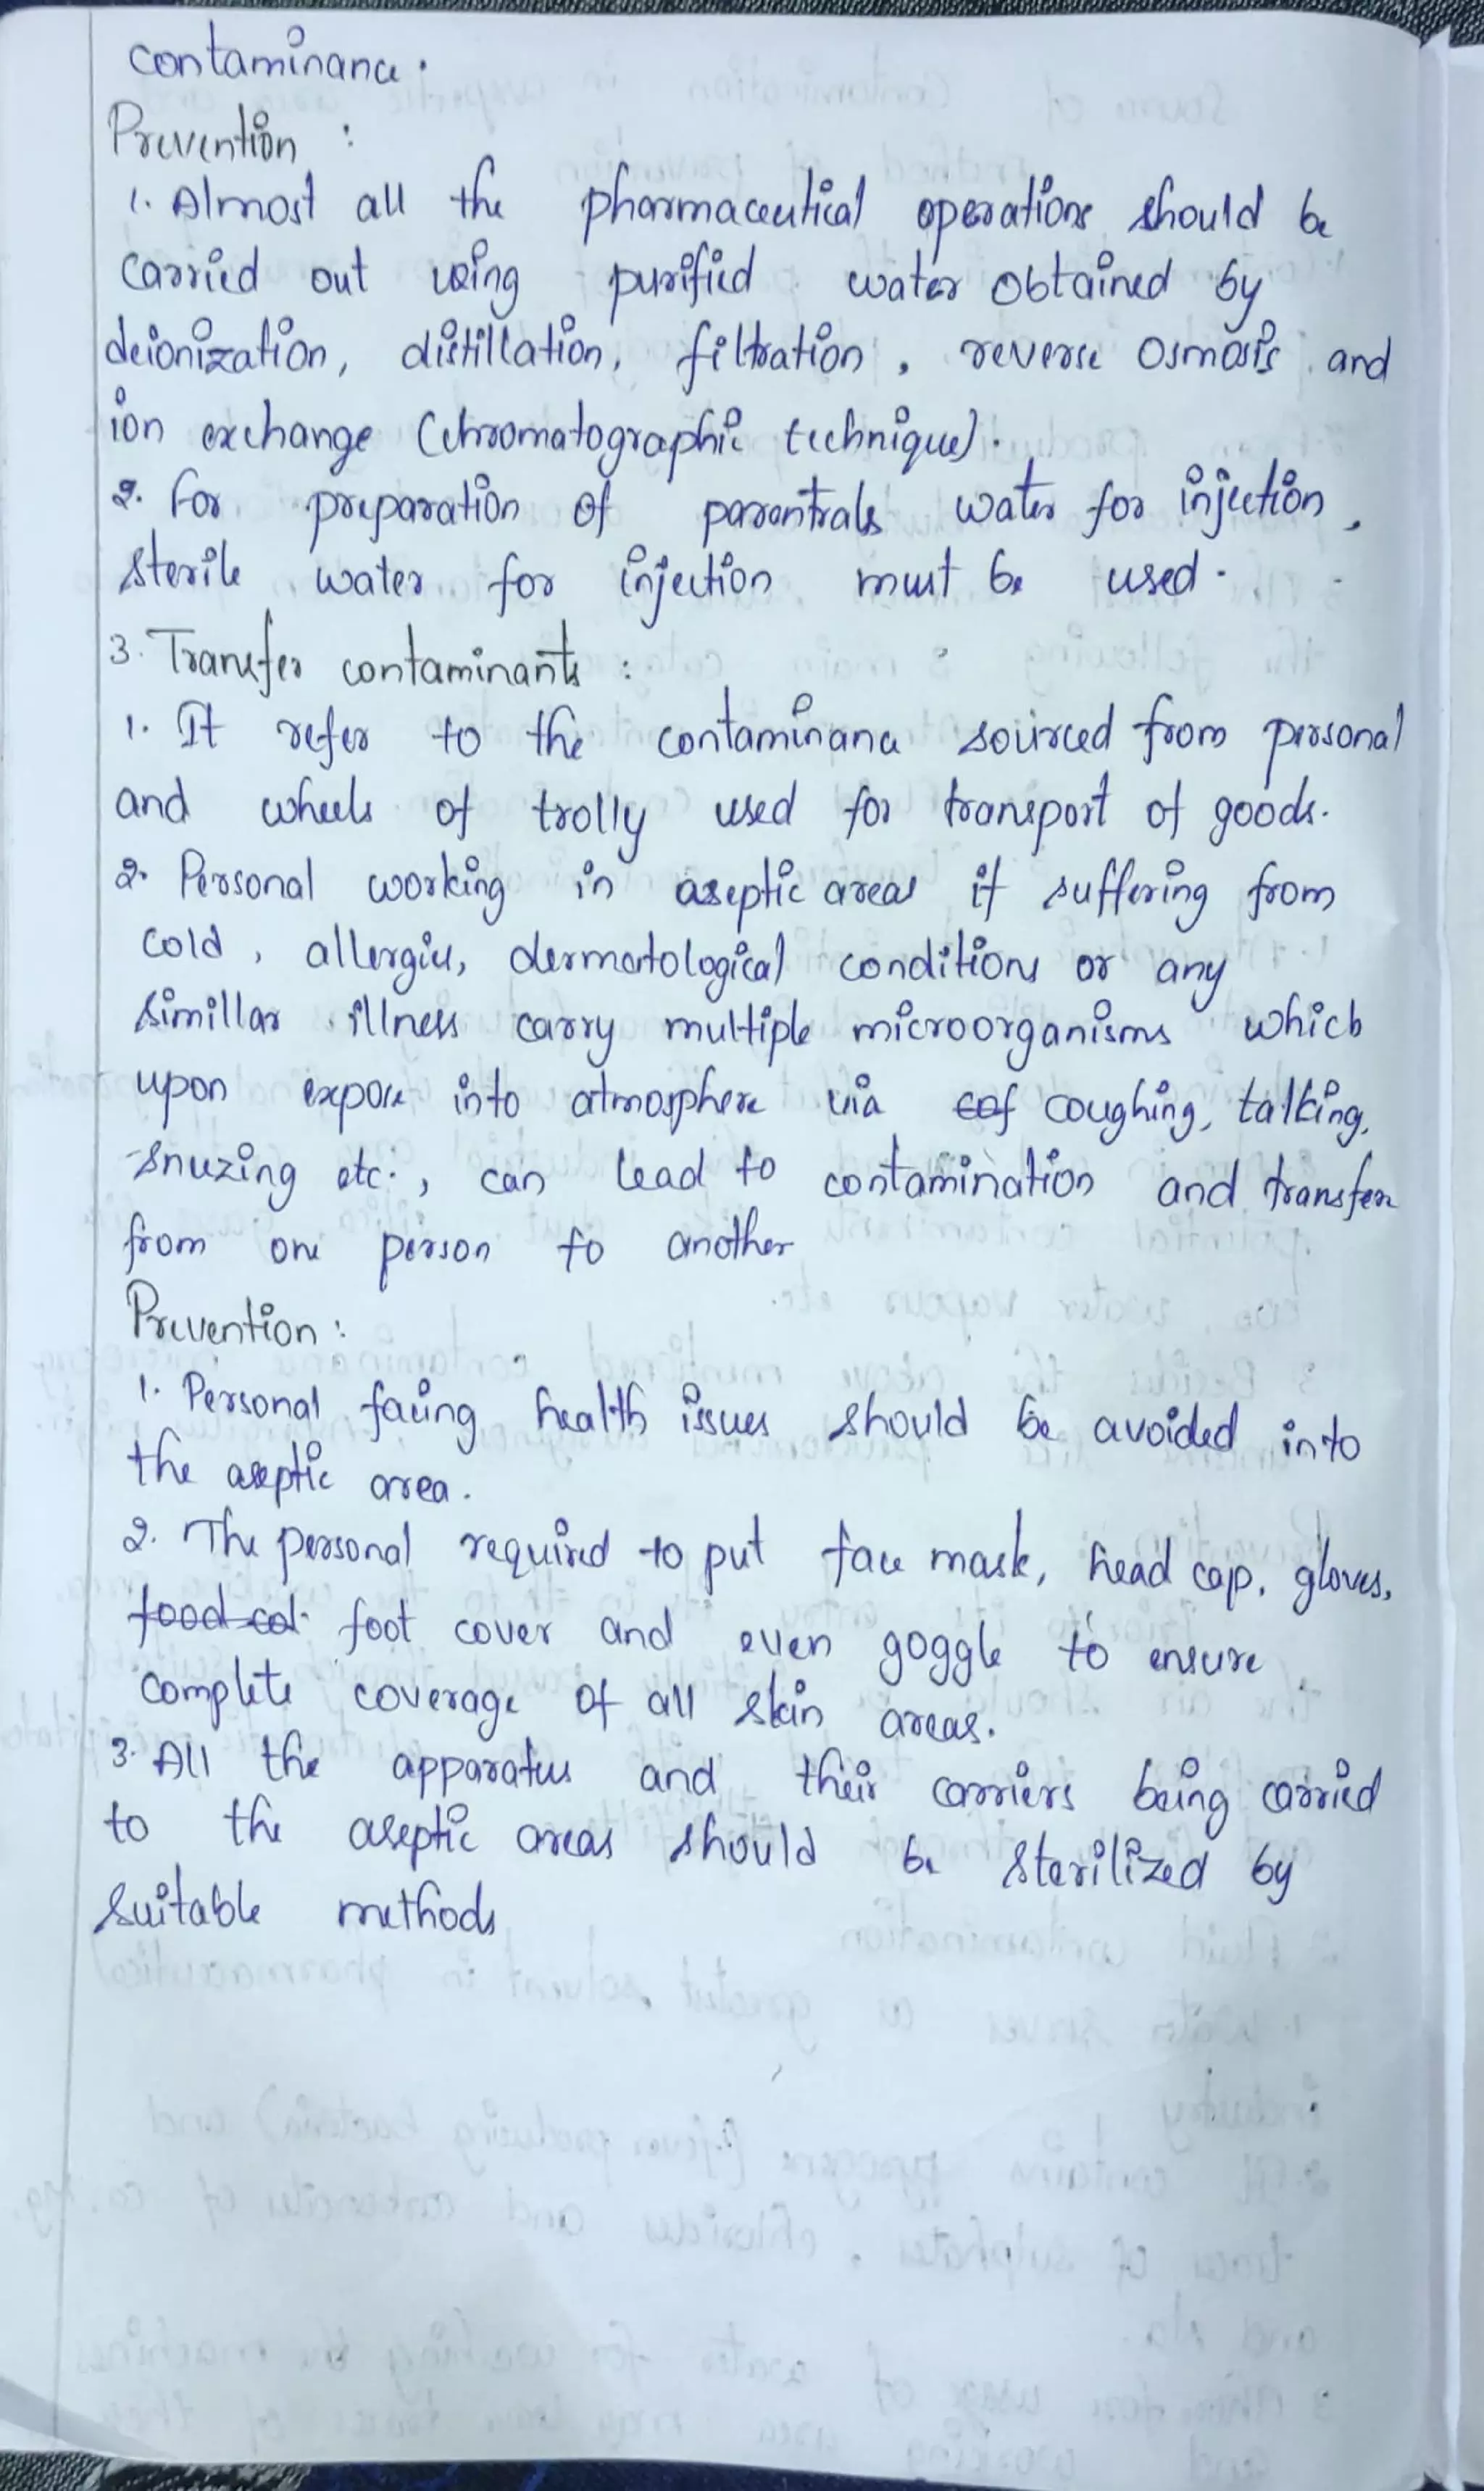 contaminance.
Prevention :
1. Almost all the pharmaceutical operations should be
carried out using purified water obtained by
deionization, distillation, filtration, reverse osmosis and
ion exchange (chromatographic technique).
2. For preparation of parentrals water for injection,
sterile water for injection must be used.
3. Transfer contaminants :
1. It refer to the contaminance sourced from personal
and wheels of trolly used for transport of goods.
2. Personal working in aseptic areas if suffering from
cold, allergies, dermatological conditions or any
simillar illness carry multiple microorganisms which
upon expose into atmosphere via cof coughing, talking,
snuzing etc., can lead to contamination and transfer
from one person to another
Prevention :
1. Personal facing health issues should be avoided into
the aseptic area.
2. The personal required to put face mask, head cap, gloves,
food col. foot cover and even goggle to ensure
complete coverage of all skin areas.
3. All the apparatus and their carriers being carried
to the aseptic areas should be sterilized by
suitable methods